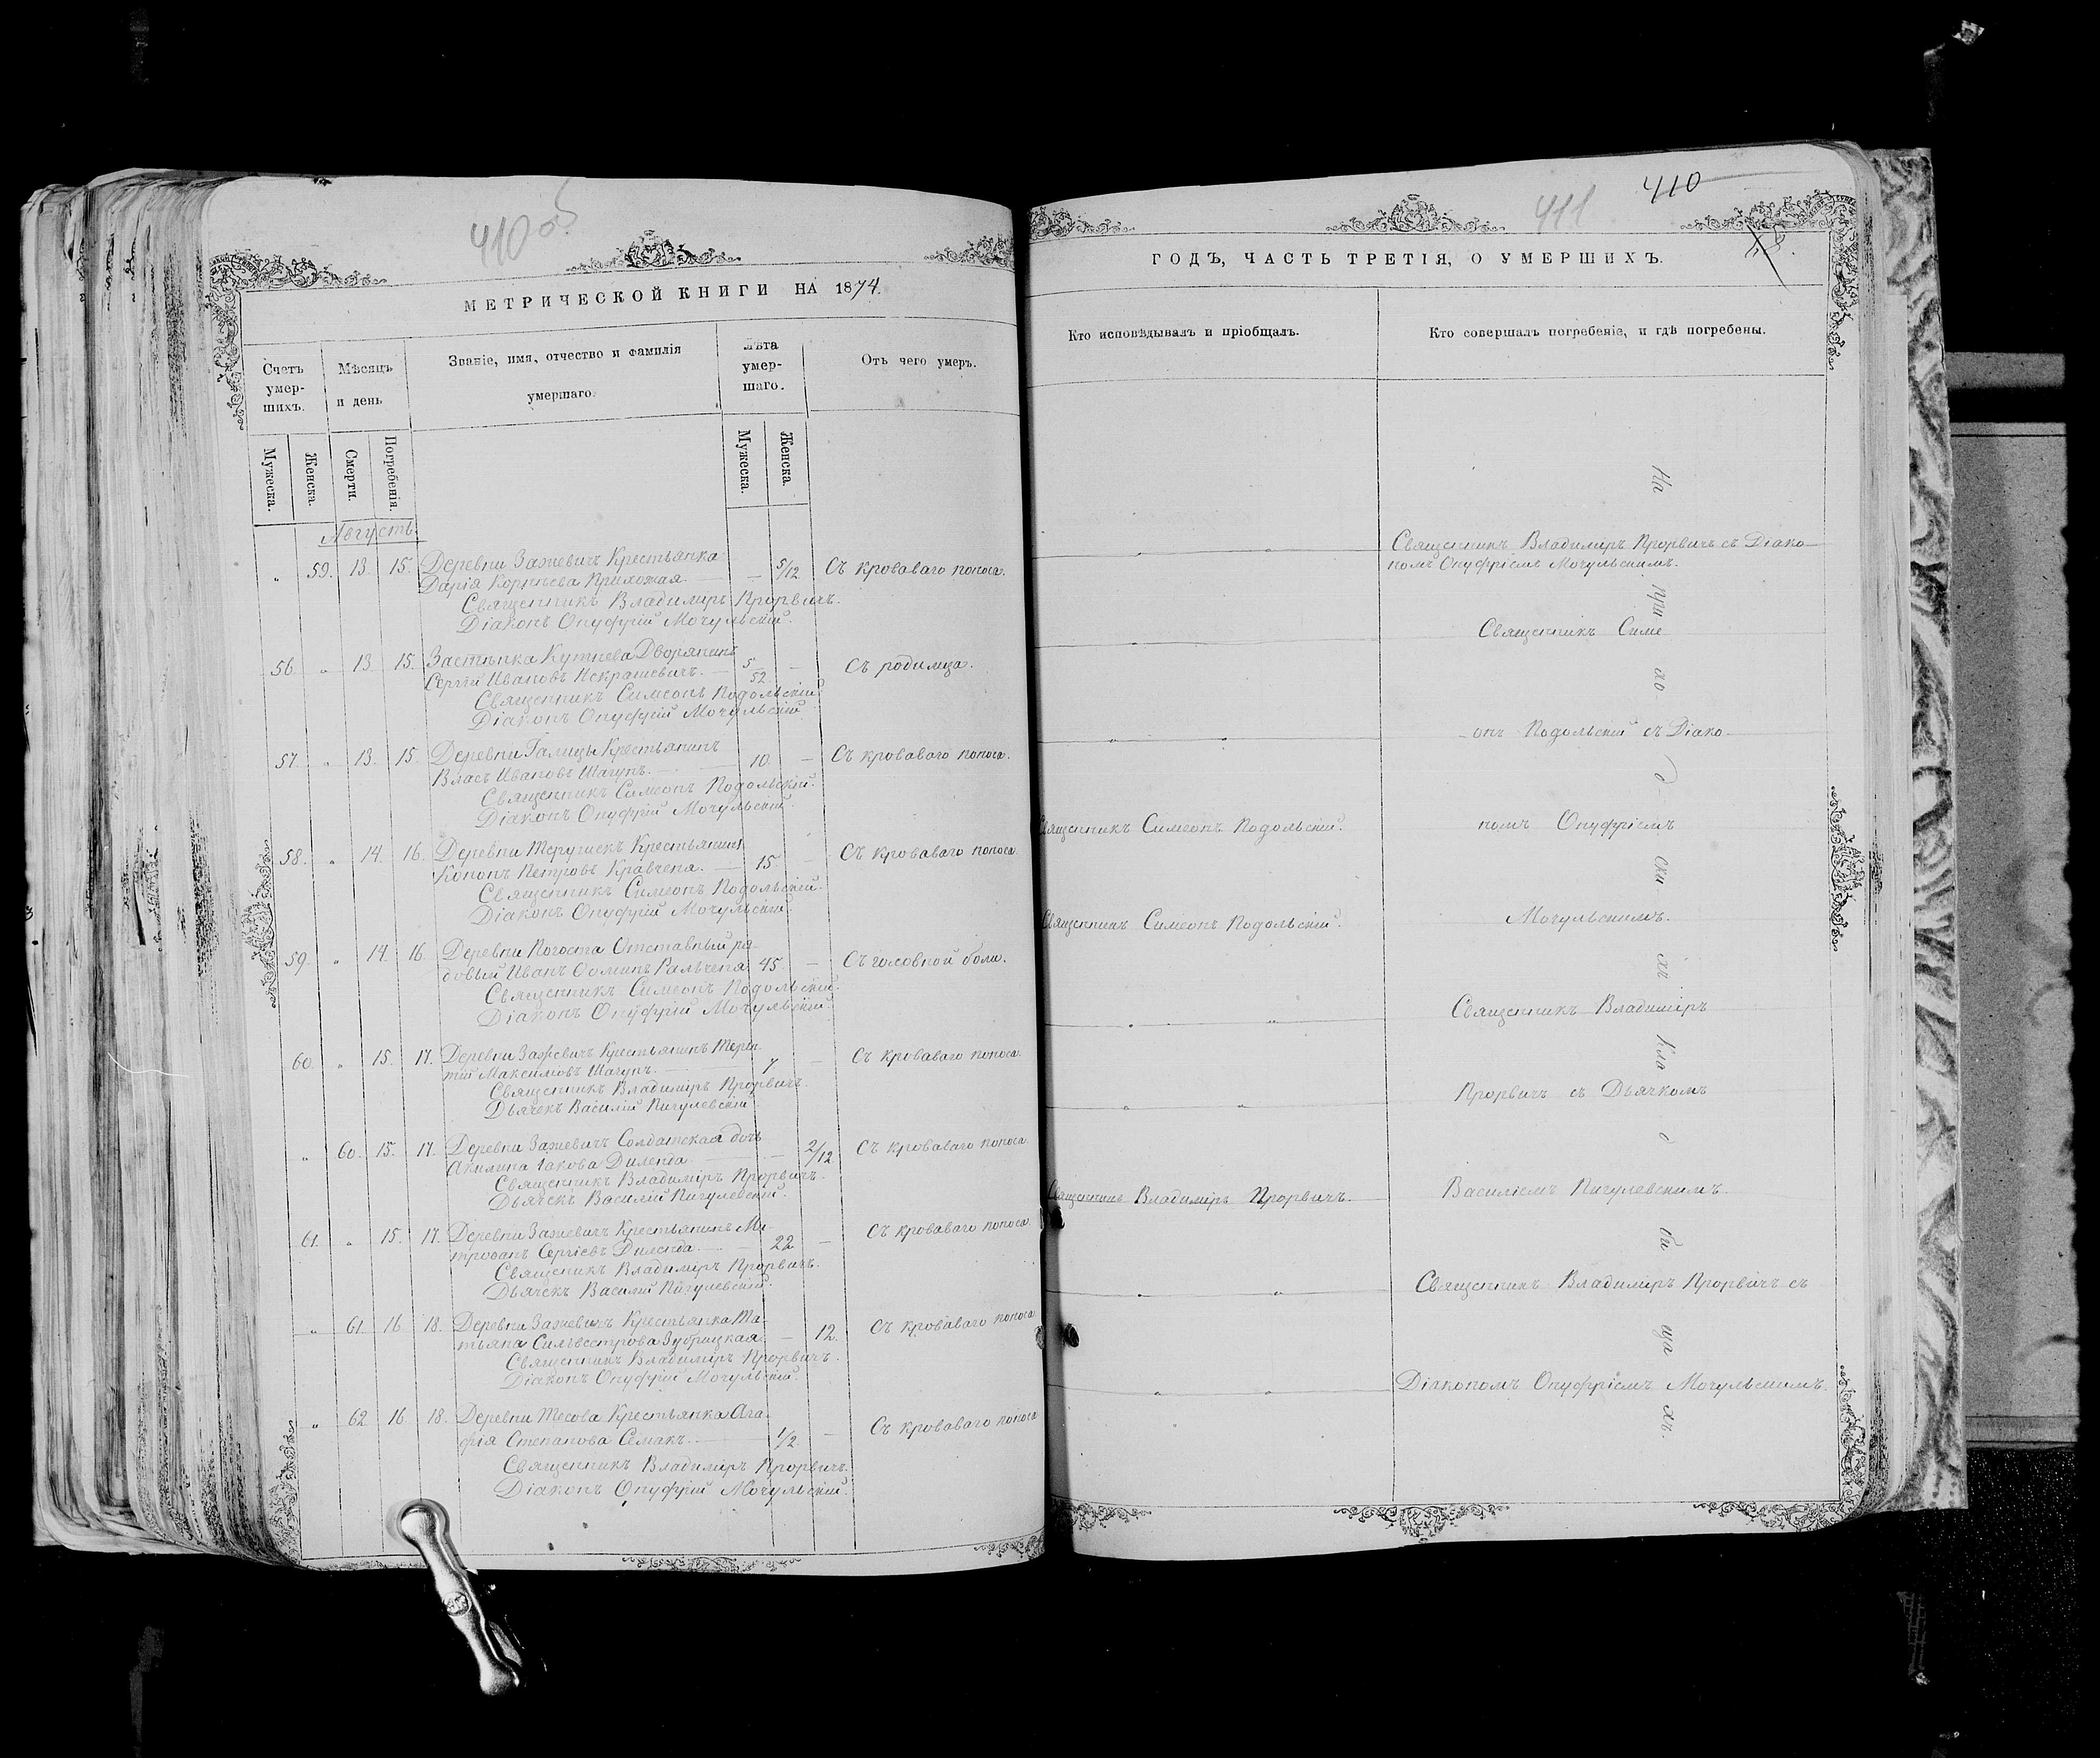 410 об
МЕТРИЧЕСКОЙ КНИГИ НА 1874.
Счетъ умер-шихъ.
Мѣсяцъ и день
Званіе, имя, отчество и фамилія умершаго.
Лѣта умер-шаго.
Отъ чего умеръ.
Мужеска.
Женска.
Смерти.
Погребенія.
Мужеска.
Женска.
Августъ.
„ 59. 13. 15. Деревни Зажевичъ Крестьянка — 5/12 Съ кроваваго поноса.
Дарія Корнѣева Прихожая.
Священникъ Владимиръ Прорвичъ.
Діаконъ Онуфрій Мочульскій.
56. „ 13. 15. Застѣнка Кутнева Дворянинъ 5/52 — Съ родимца.
Сергій Ивановъ Некрашевичъ.
Священникъ Симеонъ Подольскій.
Діаконъ Онуфрій Мочульскій.
57. „ 13. 15. Деревни Галицы Крестьянинъ 10. — Съ кроваваго поноса.
Власъ Ивановъ Шагунъ.
Священникъ Симеонъ Подольскій.
Діаконъ Онуфрій Мочульскій.
58. „ 14. 16. Деревни Терушекъ Крестьянинъ 15 — Съ кроваваго поноса.
Кононъ Петровъ Кравченя.
Священникъ Симеонъ Подольскій.
Діаконъ Онуфрій Мочульскій.
59. „ 14. 16. Деревни Погоста Отставный ря-
довый Иванъ Ѳоминъ Ральченя 45. — Съ головной боли.
Священникъ Симеонъ Подольскій.
Діаконъ Онуфрій Мочульскій.
60. „ 15. 17. Деревни Зажевичъ Крестьянинъ Терен-
тій Максимовъ Шагунъ. 7 — Съ кроваваго поноса.
Священникъ Владимиръ Прорвичъ.
Дьячекъ Василій Пигулевскій.
„ 60. 15. 17. Деревни Зажевичъ Солдатская дочь — 2/12 Съ кроваваго поноса.
Акилина Іакова Диленда.
Священникъ Владиміръ Прорвичъ.
Дьячекъ Василій Пигулевскій.
61. „ 15. 17. Деревни Зажевичъ Крестьянинъ Ми-
трофанъ Сергіевъ Диленда. 22 — Съ кроваваго поноса.
Священникъ Владиміръ Прорвичъ.
Дьячекъ Василій Пигулевскій.
„ 61. 16 18. Деревни Зажевичъ Крестьянка Та-
тьяна Сильвестрова Зубрицкая — 12. Съ кроваваго поноса.
Священникъ Владиміръ Прорвичъ.
Діаконъ Онуфрій Мочульскій.
„ 62. 16 18. Деревни Тесова Крестьянка Ага-
фія Степанова Семакъ. 1/2 — Съ кроваваго поноса.
Священникъ Владиміръ Прорвичъ.
Діаконъ Онуфрій Мочульскій.
411
410
ГОДЪ, ЧАСТЬ ТРЕТІЯ, О УМЕРШИХЪ.
Кто исповѣдывалъ и пріобщалъ.
Кто совершалъ погребеніе, и гдѣ погребены.
Священникъ Владиміръ Прорвичъ съ Діако-
номъ Онуфріемъ Мочульскимъ.
Священникъ Симе
онъ Подольскій съ Діако-
Священникъ Симеонъ Подольскій.
номъ Онуфріемъ
Священникъ Симеонъ Подольскій.
Мочульскимъ.
Священникъ Владиміръ
Прорвичъ съ Дьячкомъ
Священникъ Владиміръ Прорвичъ.
Василіемъ Пигулевскимъ.
Священникъ Владиміръ Прорвичъ съ
Діакономъ Онуфріемъ Мочульскимъ.
На при хо д ски хъ кла д би ща хъ.